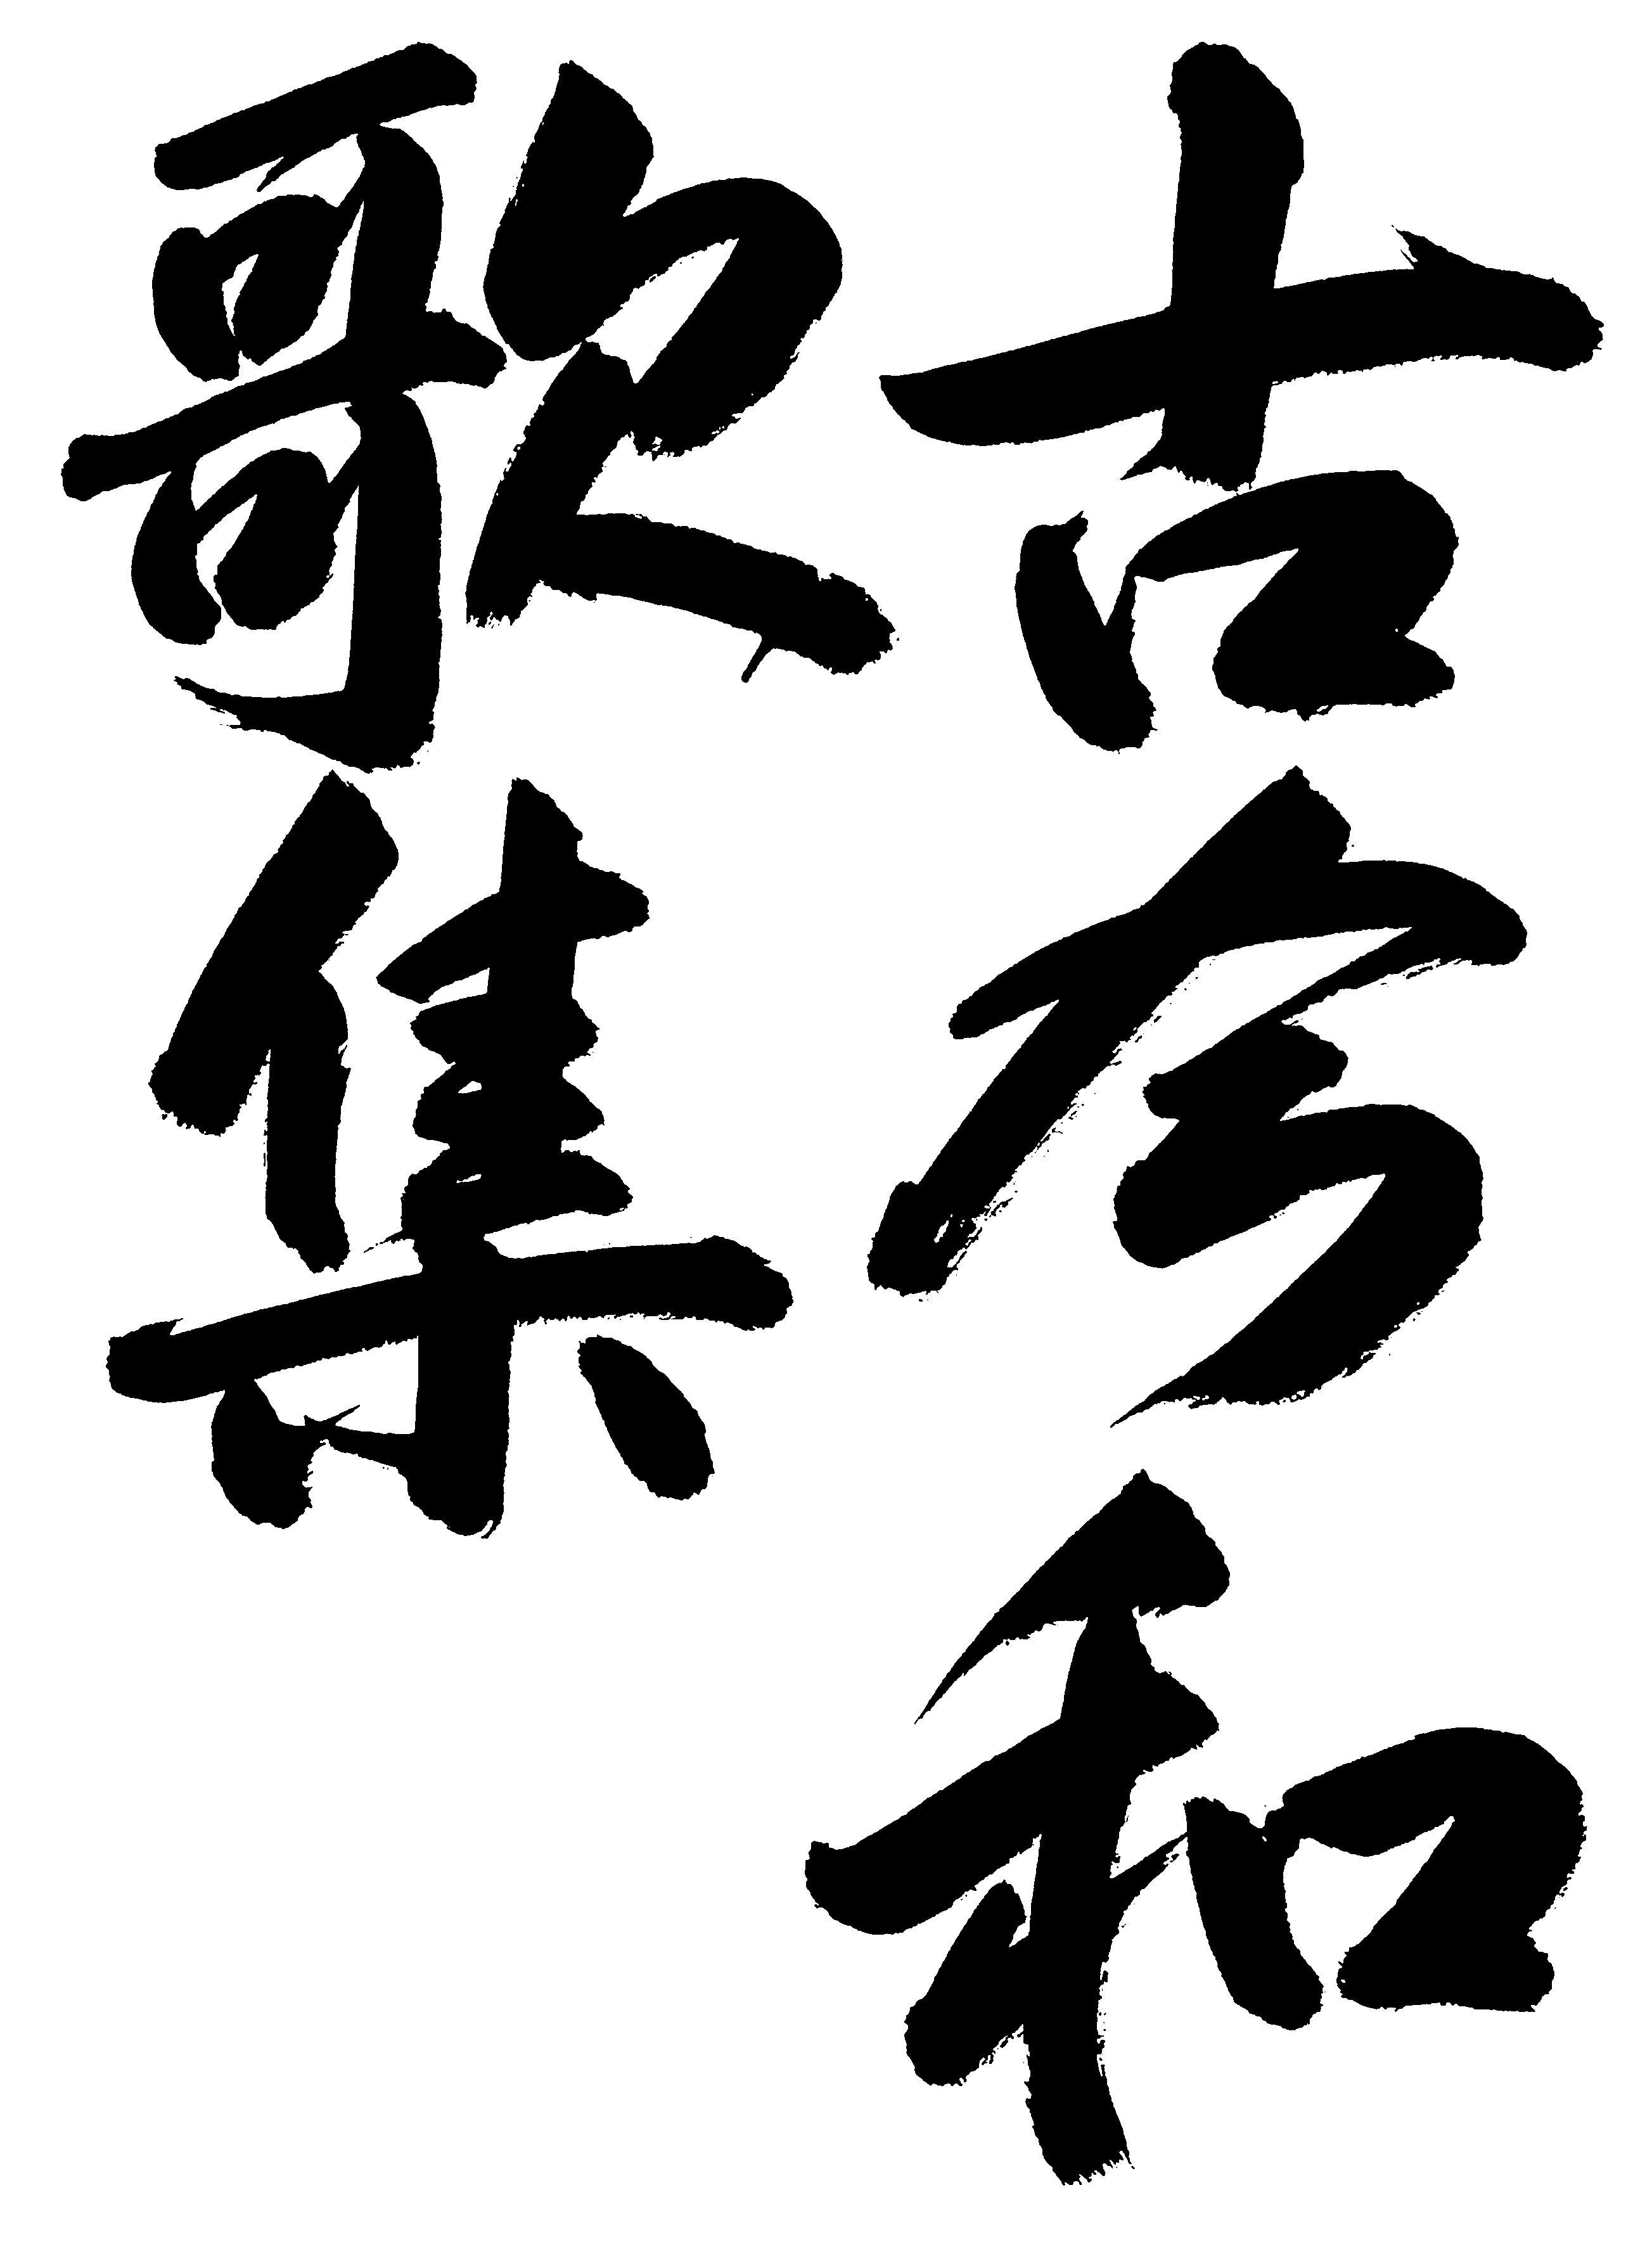 古今和
歌集